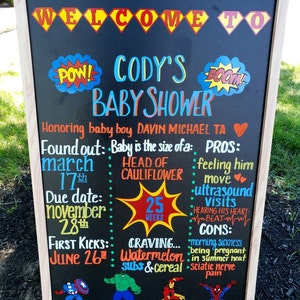 WELCOME TO
POW!
CODY'S
BABY SHOWER
BOOM!
Honoring baby boy DAVIN MICHAEL TA
Found out:
march
17th
Due date:
november
28th
First Kicks:
June 26th
Baby is the size of a:
HEAD OF
CAULIFLOWER
25
WEEKS
CRAVING...
Watermelon,
subs & cereal
PROS:
feeling him
move
ultrasound
visits
HEARING HIS HEART
BEAT
CONS:
morning sickness
being pregnant
in summer heat
sciatic nerve
pain